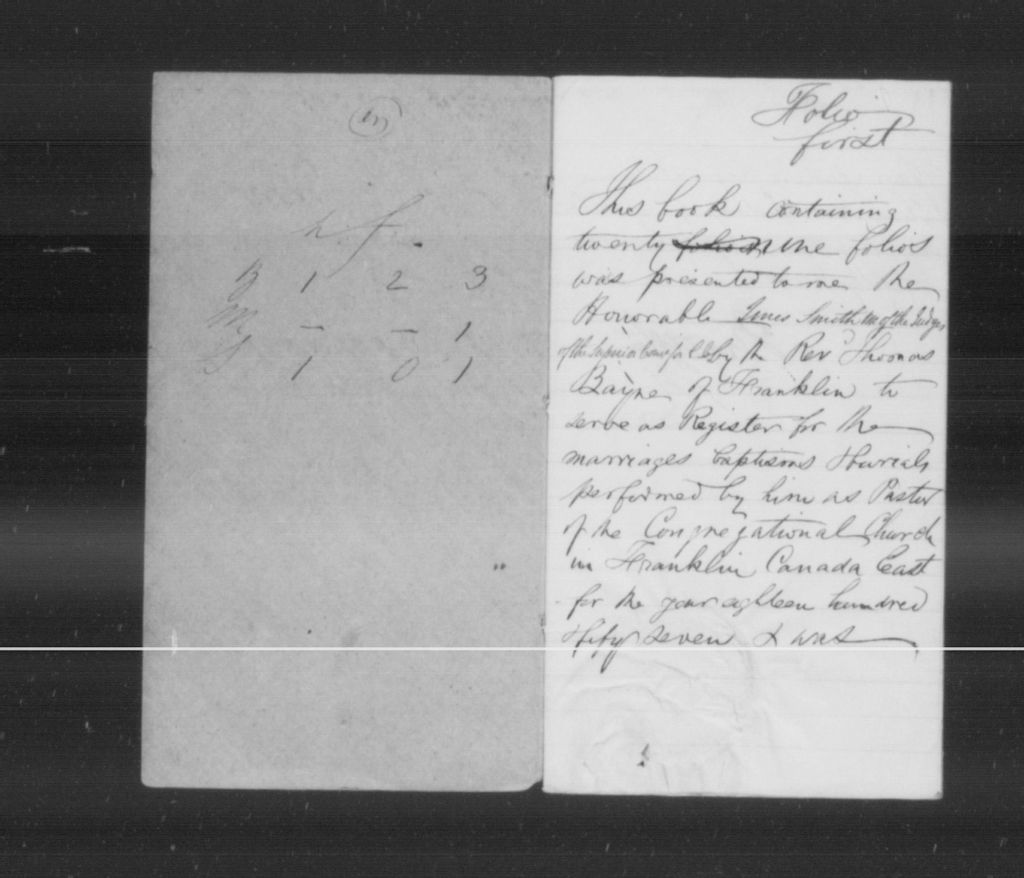 m f
B 1 2 3
M – – 1
S 1 0 1
Folio
first
This book containing
twenty folios nine folios
was presented to me the
Honorable James Smith one of the Judges
of the Superior Court for L C by the Revd Thomas
Bayne of Franklin to
serve as Register for the
marriages baptisms & burials
performed by him as Pastor
of the Congregational Church
in Franklin Canada East
for the year eighteen hundred
& fifty seven & was